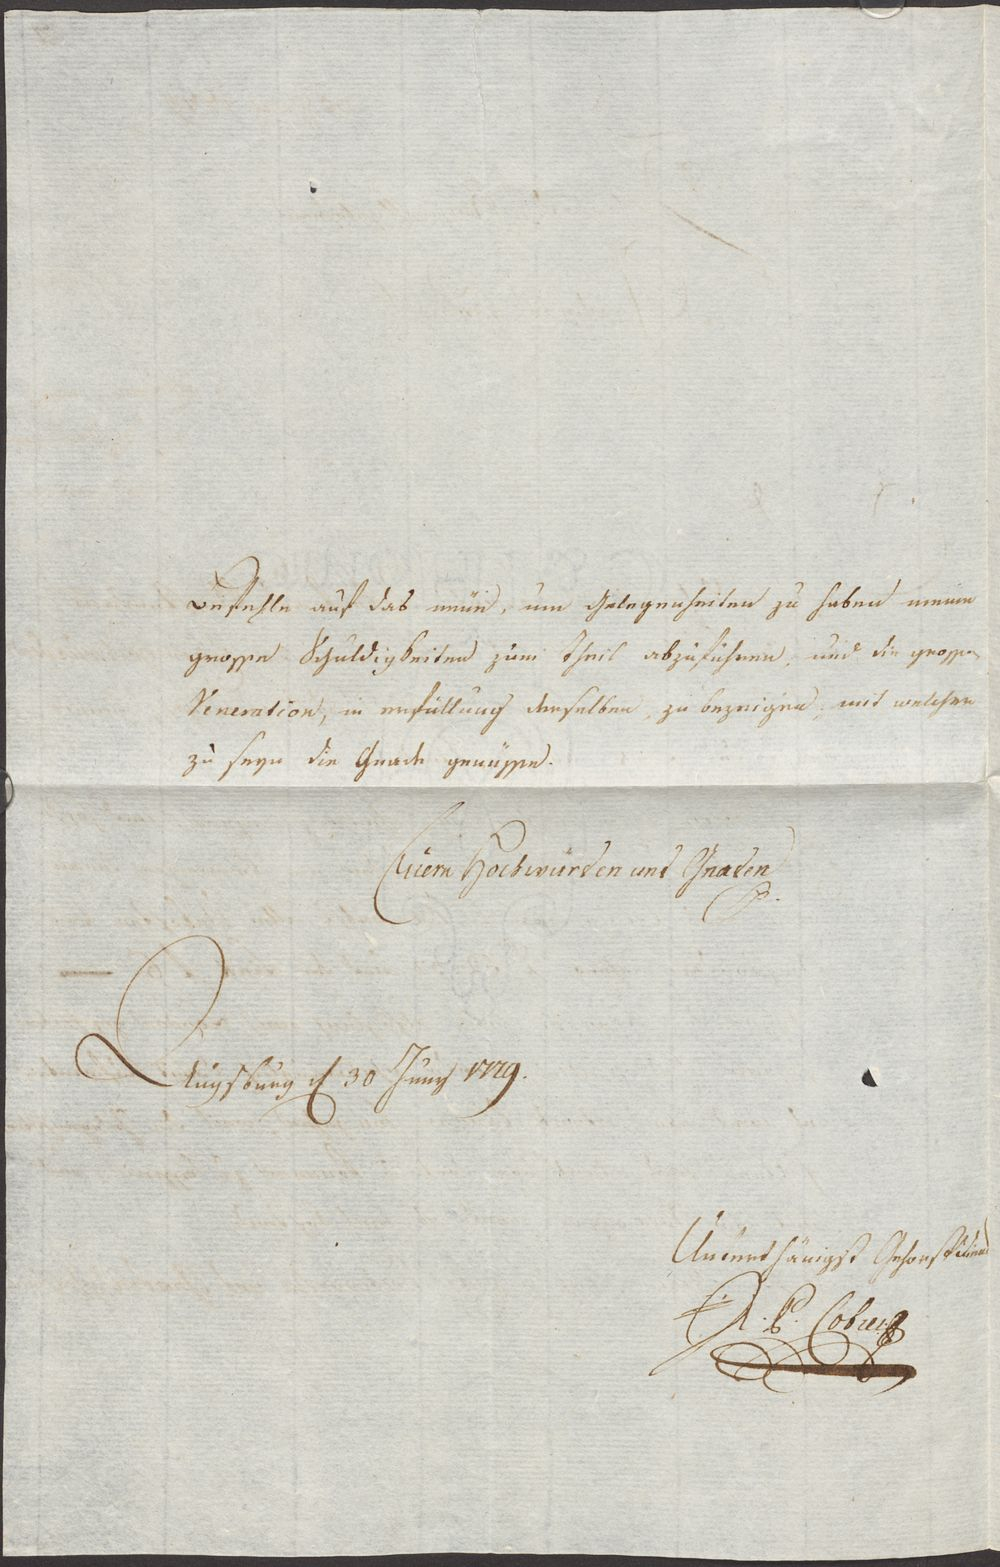 Befehle auf das neüe, um Gelegenheiten zu haben meine
grosse Schuldigkeiten zum theil abzuführen, und die grosse
Veneration, in erfüllung derselben, zu bezeigen, mit welcher
zu seyn die Gnade genüsse.
Euern Hochwürden und Gnaden
Augsburg d 30 Juny 1779.
Unterthänigst Gehorst